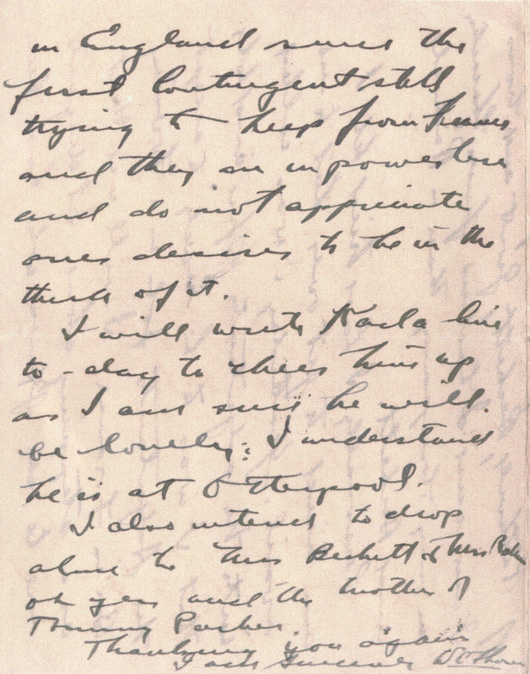 in England since the
first Contingent still
trying to keep from France
and they are in power here
and do not appreciate
ones desires to be in the
thick of it.
I will write Karl a line
to-day to cheer him up
as I am sure he will.
be lonely; I understand
he is at Otterpool.
I also intend to drop
a line to Mrs Beckett & Mrs
oh yes and the mother of
Tommy Parker.
Thanking you again
I am Sincerely